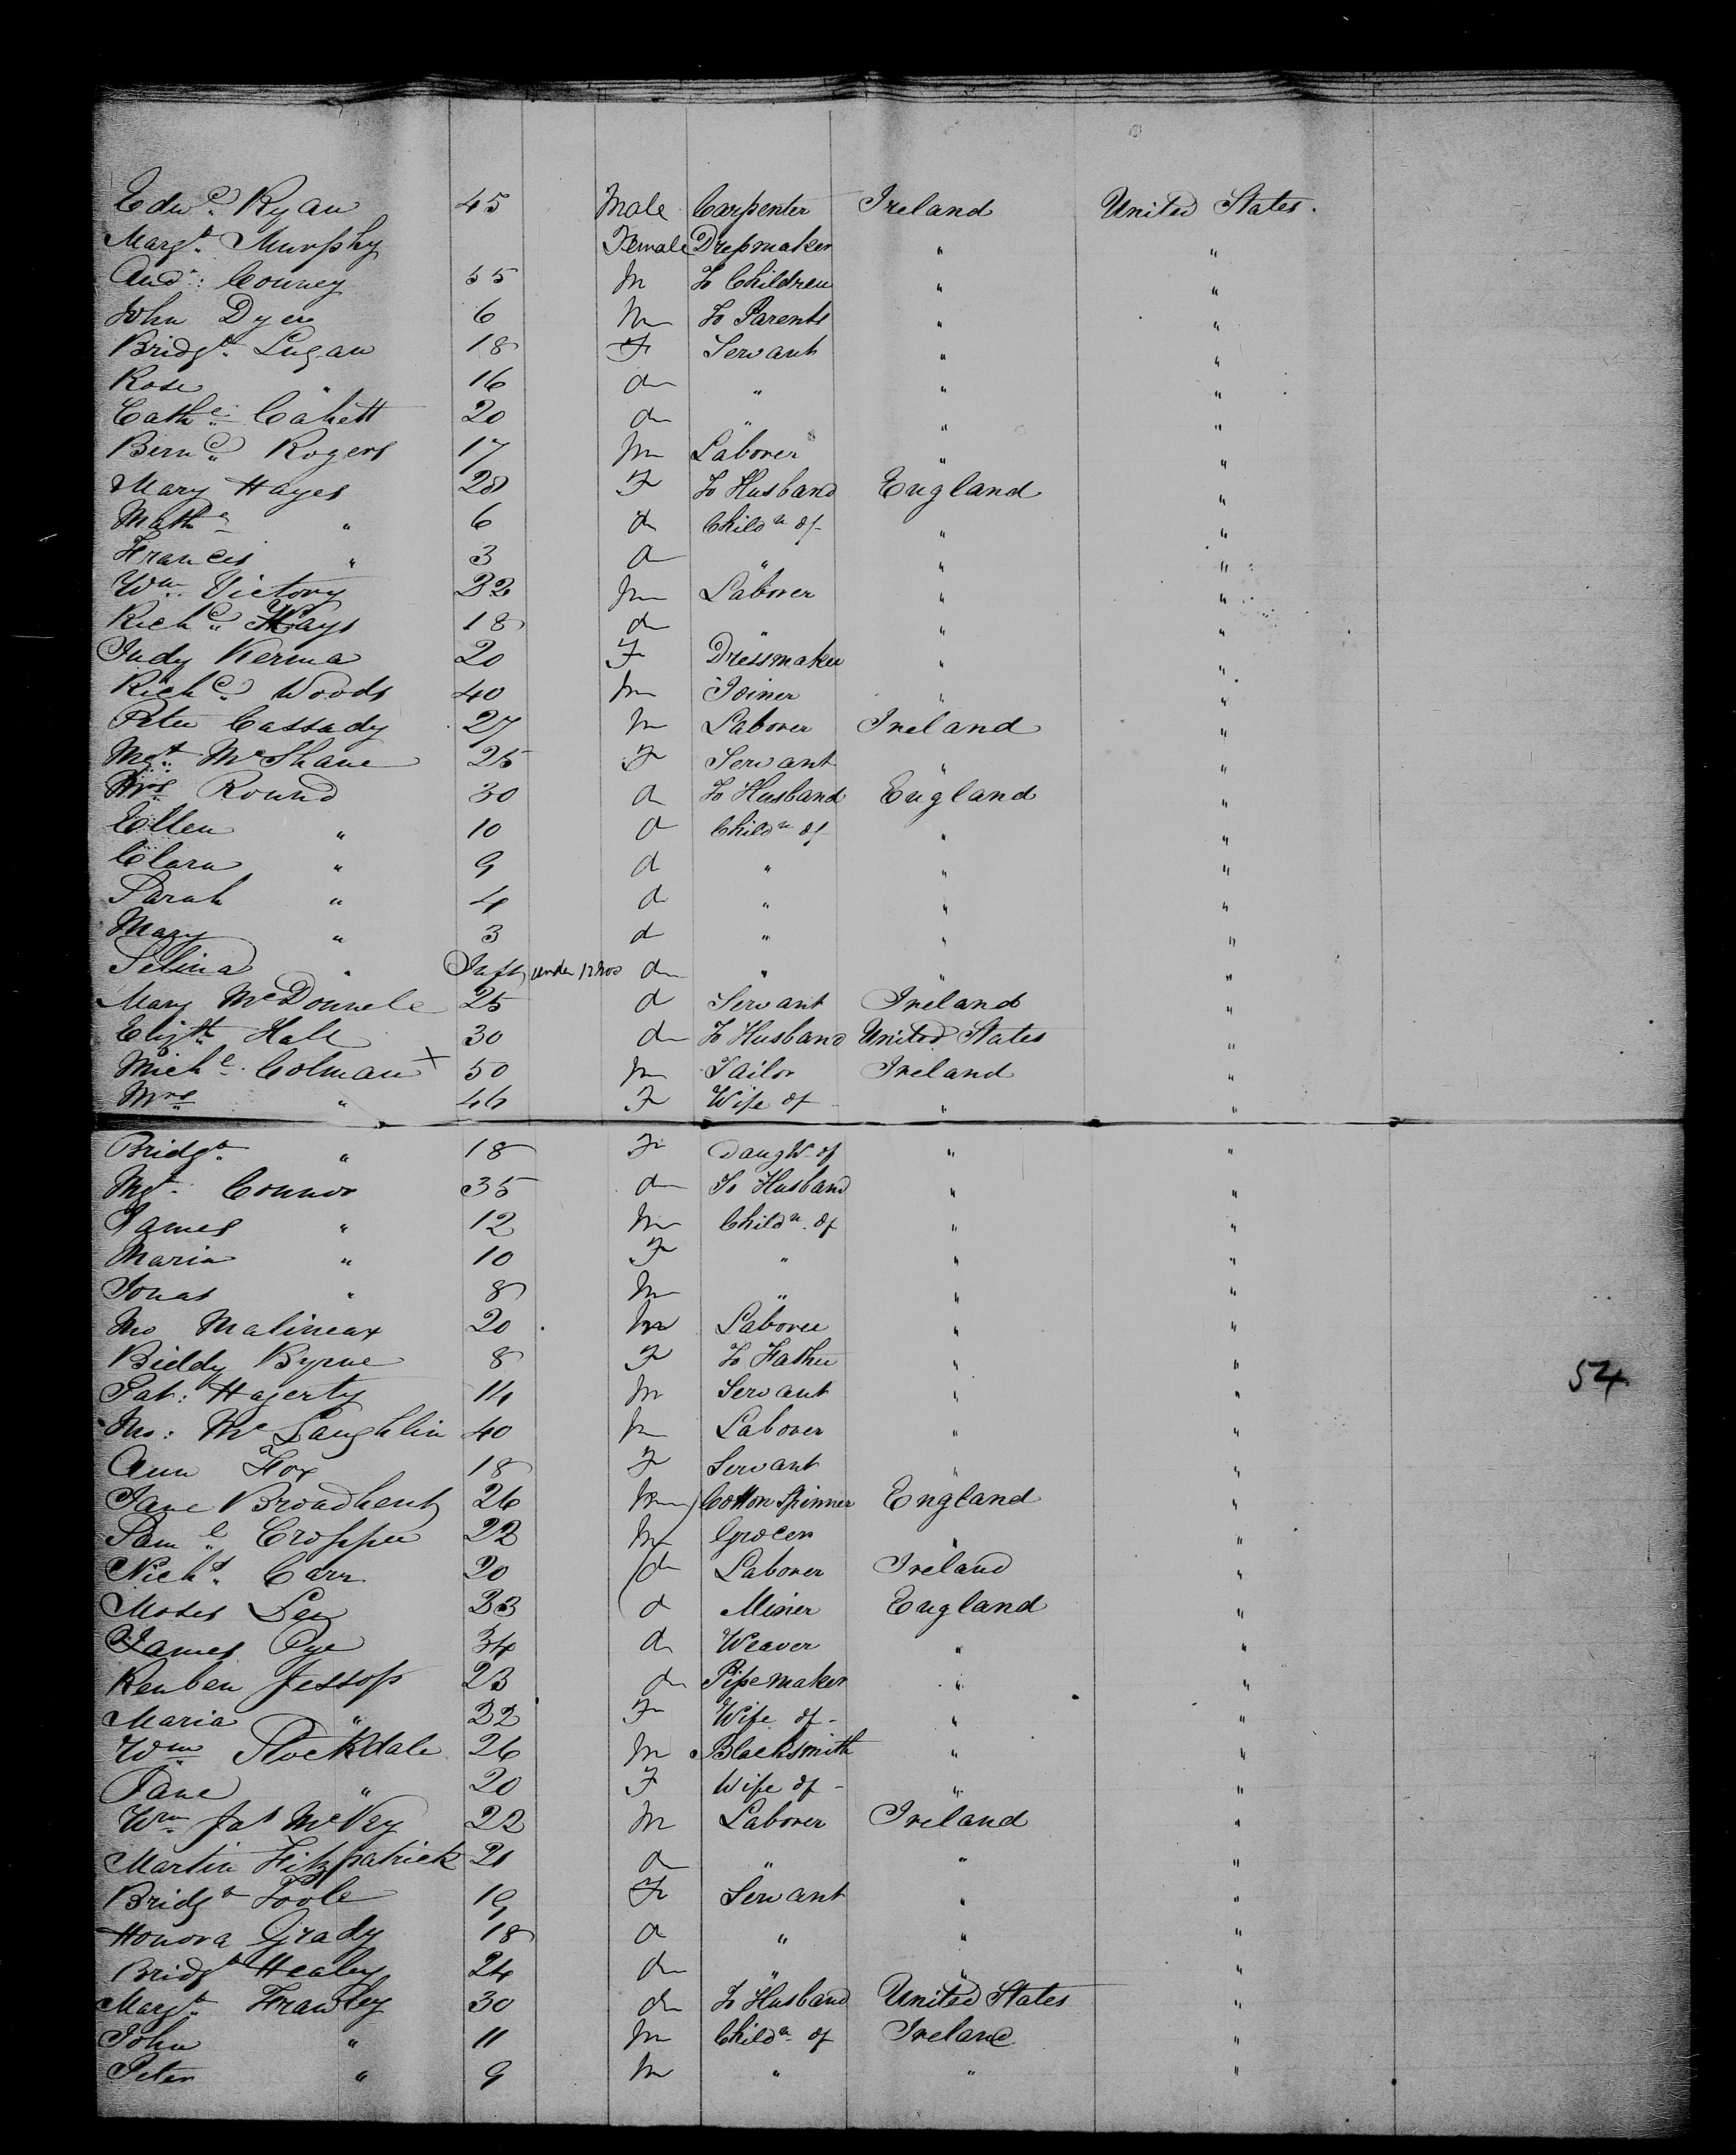 Edwd. Ryan 45 Male Carpenter Ireland United States.
Margt. Murphy Female Dressmaker " "
And: Conney 55 M To Children " "
John Dyer 6 M To Parents " "
Bridgt. Lugan 18 F Servant " "
Rose " 16 do " " "
Cathe. Cahett 20 do " " "
Bernd. Rogers 17 M Laborer " "
Mary Hayes 28 F To Husband England "
Math " 6 do Childn of " "
Francis " 3 do " " "
Wm. Victory 32 M Laborer " "
Richd. Hays 18 do " " "
Judy Kerma 20 F Dressmaker " "
Richd. Woods 40 M Joiner " "
Peter Cassady 27 M Laborer Ireland "
Mgt. McShane 25 F Servant " "
Mrs Round 30 do To Husband England "
Ellen " 10 do Childn of " "
Clara " 9 do " " "
Sarah " 4 do " " "
Mary " 3 do " " "
Selina " Inft under 12 mos do " " "
Mary McDonnele 25 do Servant Ireland "
Elizth Hall 30 do To Husband United States "
Michl. Colman X 50 M Tailor Ireland "
Mrs " 46 F Wife of - " "
Bridgt. " 18 F Daughtr of " "
Mgt. Connor 35 do To Husband " "
James " 12 M Childn. of " "
Maria " 10 F " " "
Jonas " 8 M " " "
Malineax 20 M Laborer " "
Biddy Byrne 8 F To Father " "
Pat: Hagerty 14 M Servant " "
McLaughlin 40 M Laborer " "
Ann Fox 18 F Servant " "
Jane Broadhent 26 Cotton Spinner England "
Saml. Cropper 22 M Grocer " "
Nichs. Carr 20 do Laborer Ireland "
Moses Lea 33 do Miner England "
James Pye 34 do Weaver " "
Reuben Jessop 23 do Pipemaker " "
Maria " 32 F Wife of - " "
Wm Stockdale 26 M Blacksmith " "
Jane " 20 F Wife of - " "
Wm Jas McVey 22 M Laborer Ireland "
Martin Fitzpatrick 21 do " " "
Bridgt Toole 19 F Servant " "
Honora Grady 18 do " " "
Bridgt Healey 24 do " " "
Margt. Frawley 30 do To Husband United States "
John " 11 M Childn of Ireland "
Peter " 9 M " " "
54